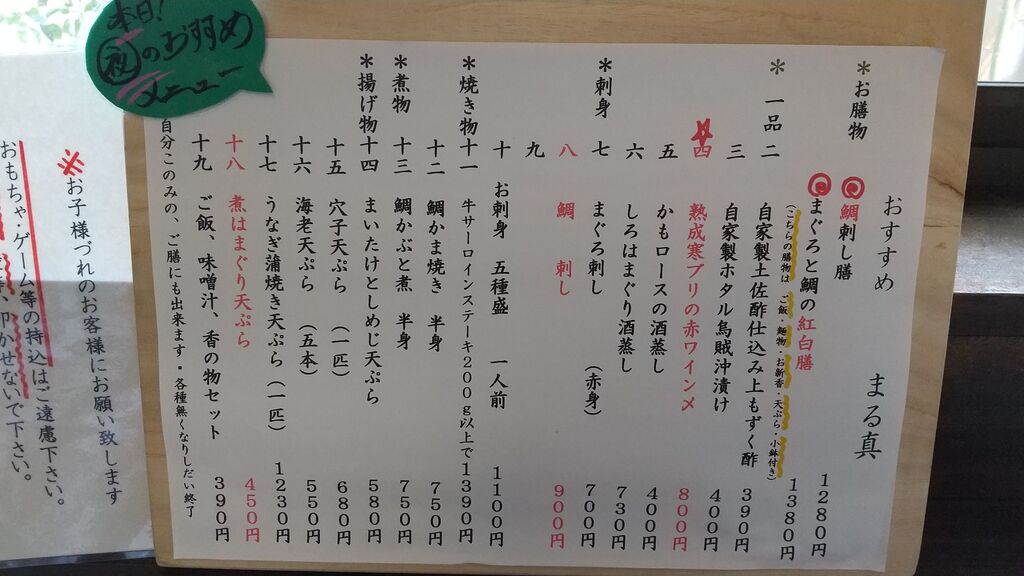 本日!
夜のおすすめ
メニュー
おすすめ　まる真
*お膳物
鯛刺し膳　1280円
まぐろと鯛の紅白膳　1380円
(こちらの膳物は　ご飯・麺物・お新香・天ぷら・小鉢付き)
*一品
二　自家製土佐酢仕込み上もずく酢　390円
三　自家製ホタル烏賊沖漬け　400円
四　熟成寒ブリの赤ワイン〆　800円
五　かもロースの酒蒸し　400円
六　しろはまぐり酒蒸し　730円
*刺身
七　まぐろ刺し　(赤身)　700円
八　鯛　刺し　900円
九
十　お刺身　五種盛　一人前　1100円
*焼き物
十一　牛サーロインステーキ200g以上で1390円
十二　鯛かま焼き　半身　750円
*煮物
十三　鯛かぶと煮　半身　750円
*揚げ物
十四　まいたけとしめじ天ぷら　580円
十五　穴子天ぷら　(一匹)　680円
十六　海老天ぷら　(五本)　550円
十七　うなぎ蒲焼き天ぷら(一匹)　1230円
十八　煮はまぐり天ぷら　450円
十九　ご飯、味噌汁、香の物セット　390円
自分このみの、ご膳にも出来ます・各種無くなりしだい終了
※お子様づれのお客様にお願い致します
おもちゃ・ゲーム等の持込はご遠慮下さい。
叩かせないで下さい。